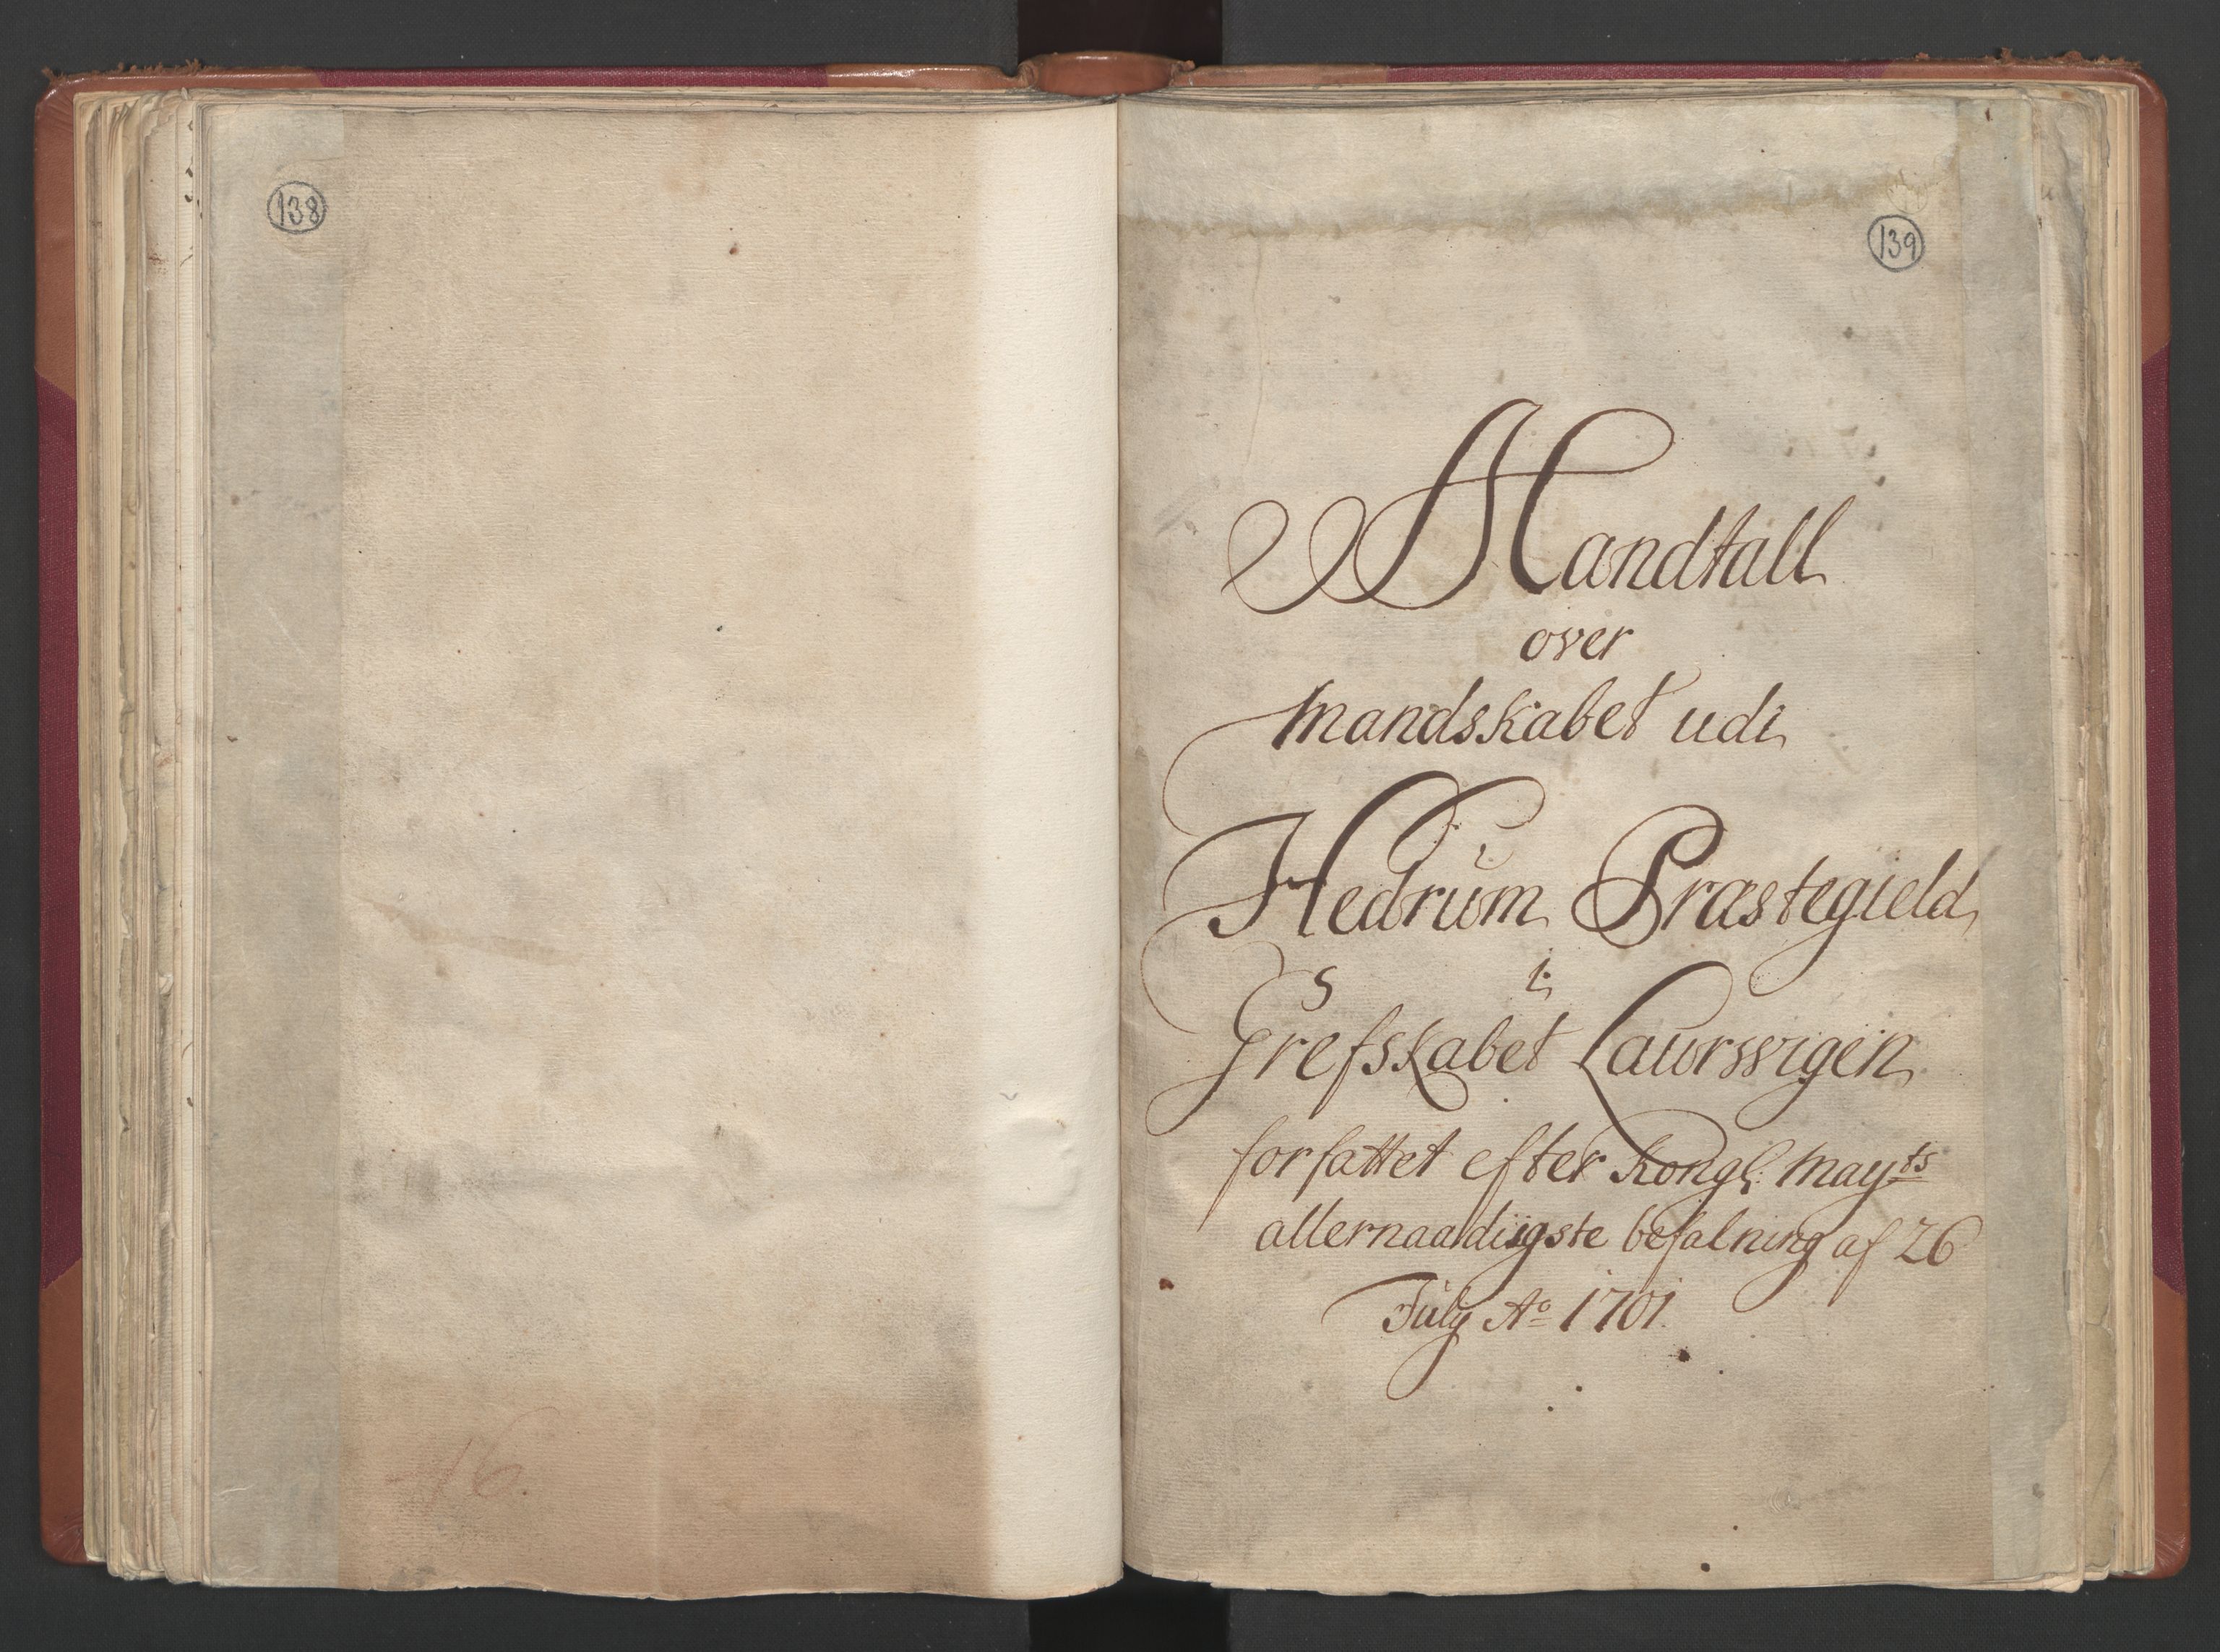 138
16.
139
Mandtall
over
mandskabet udi
Hedrům Præstegield
i
Grefskabet Laurwigen
forfattet efter Kongl: Mayts
allernaadiigste befalning af 26
Jůly Ao 1701.